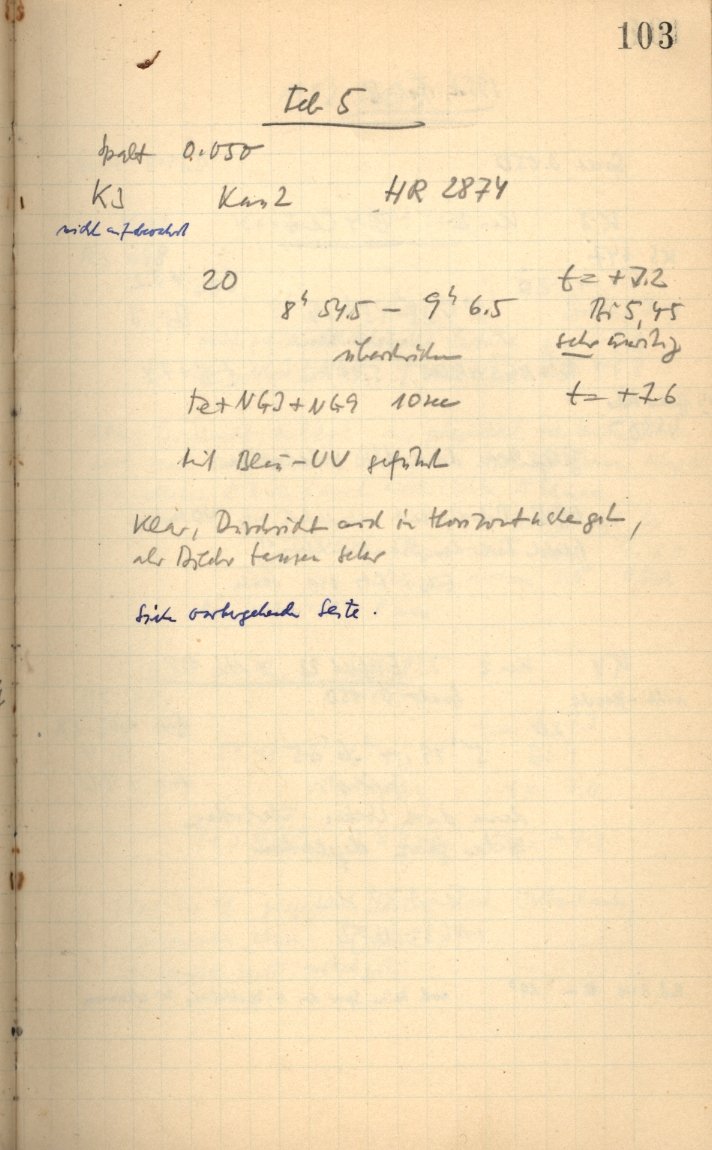 103
Feb 5
Spalt 0.050
K3 Kam 2 HR 2874
nicht aufbewahrt
20 t = +7.2
8h 54.5 – 9h 6.5 Bi 5, 45
überstrichen sehr unruhig
Fe + NG3 + NG9 10 sec t = +7.6
mit Blau-UV geführt
Klar, Durchsicht auch in Horizontnähe gut,
die Bilder tanzen sehr
Siehe vorhergehende Seite.